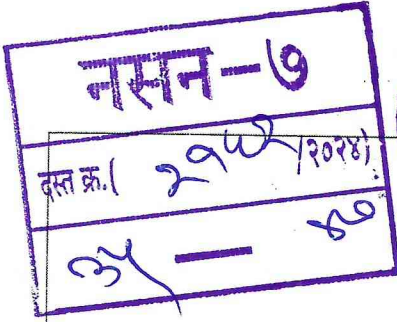 नसन-७
दस्त क्र.( २१७२ /२०२४)
३५ — ४०